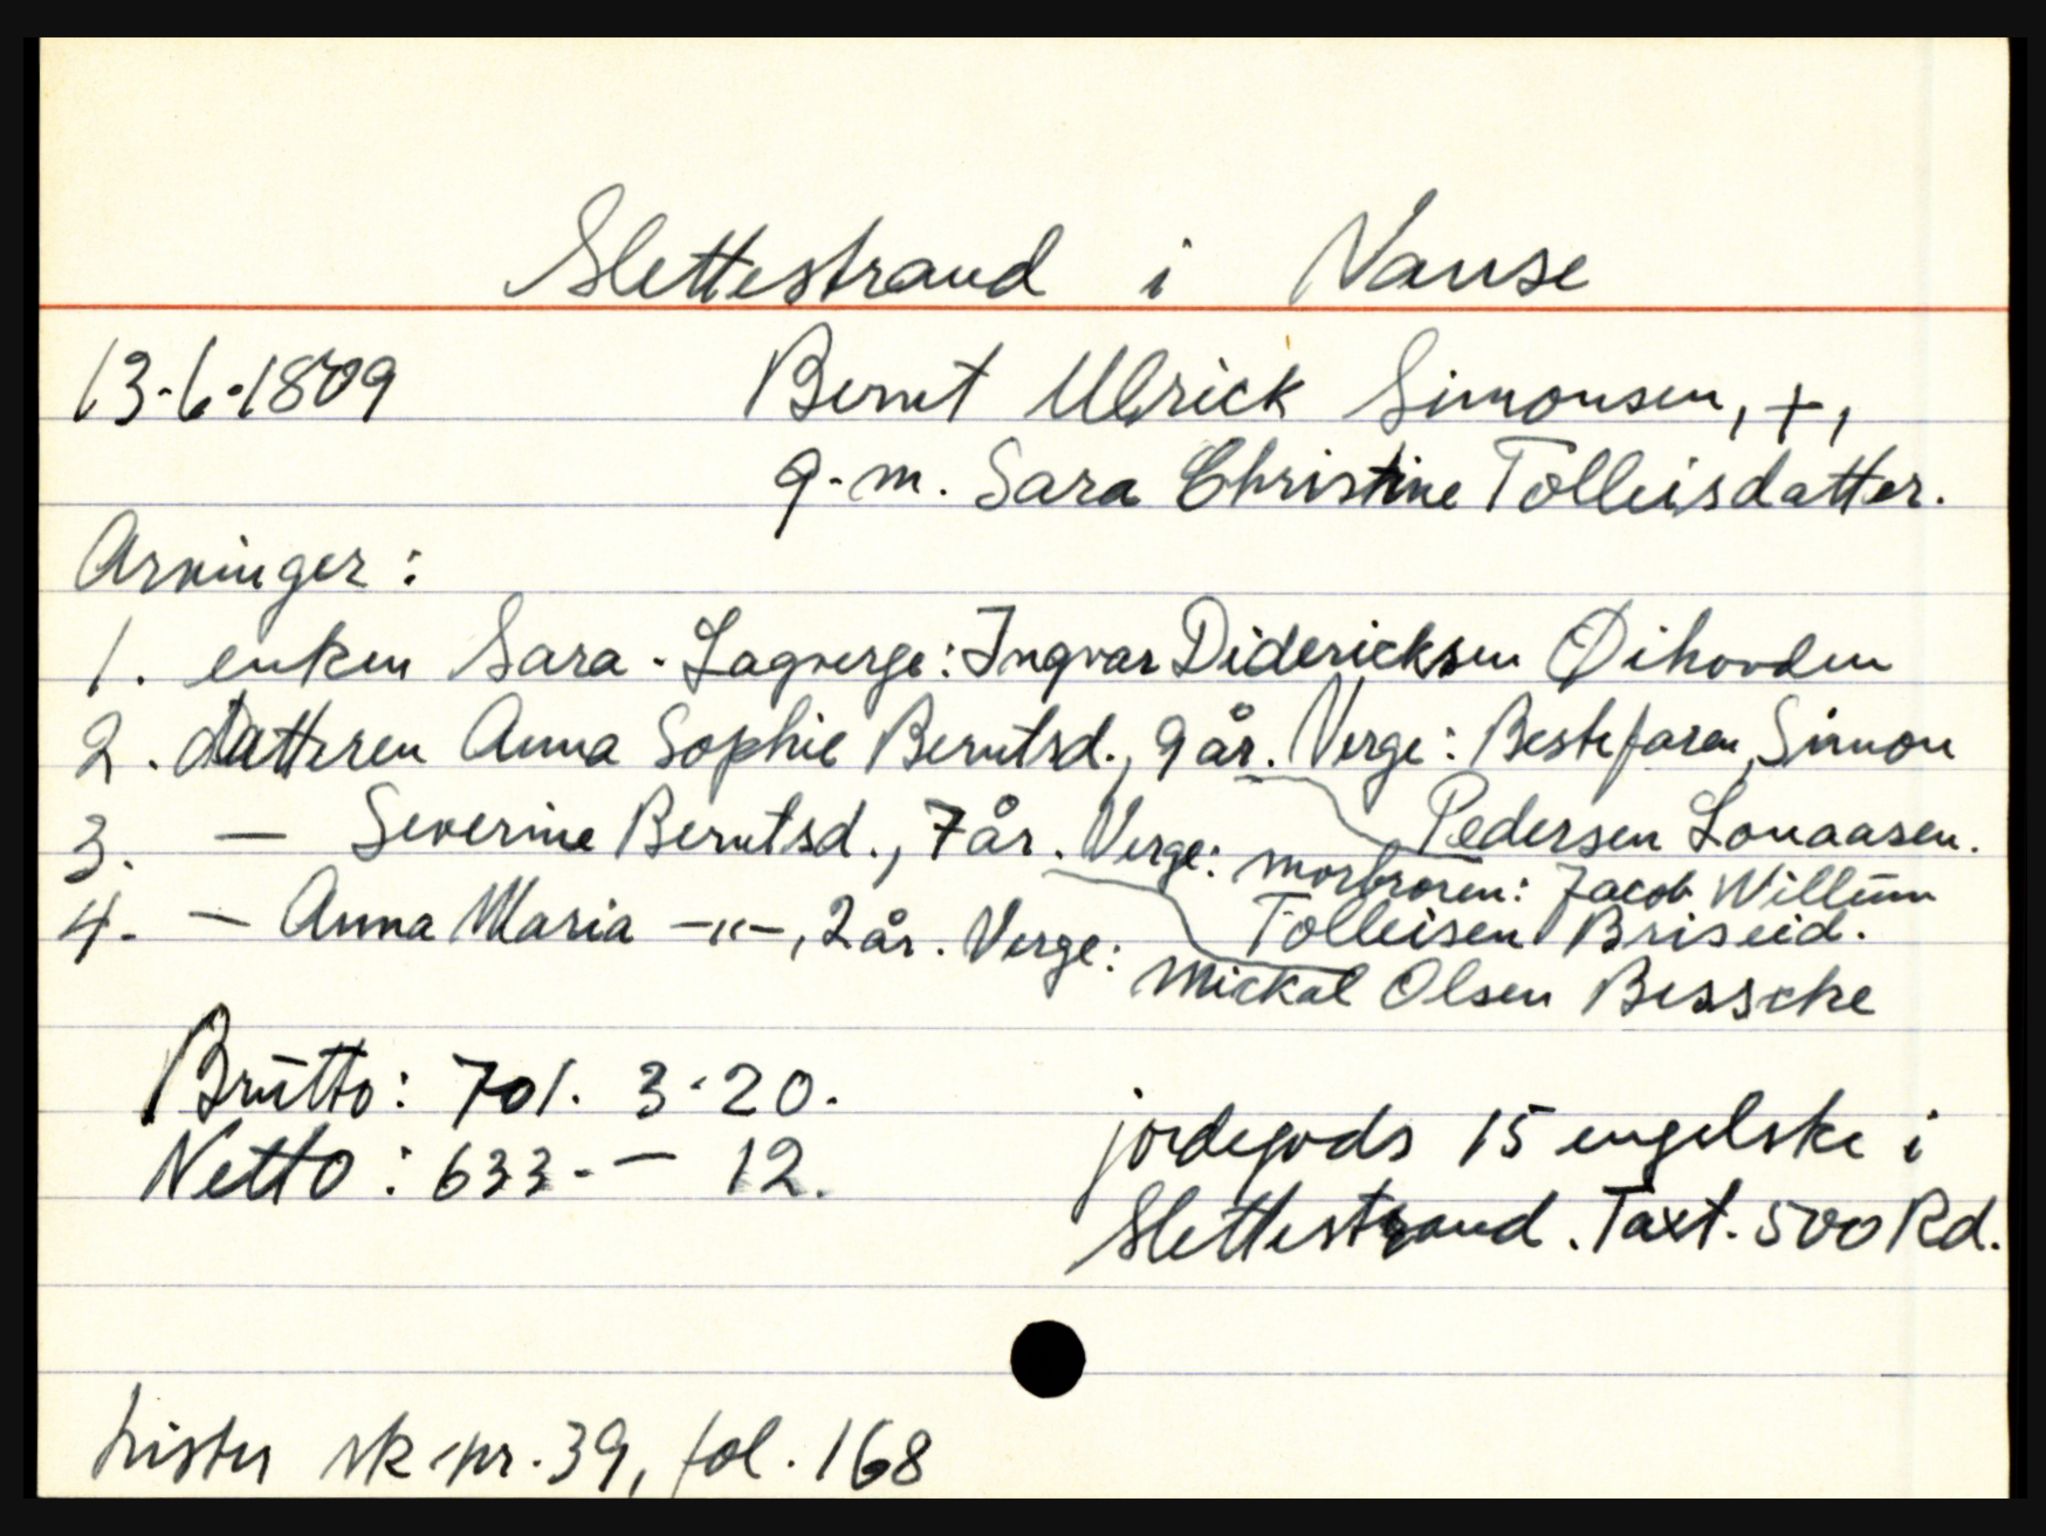 Slettestrand i Vanse
13-6-1809 Bernt Ulrick Simonsen, +,
g.m. Sara Christine Tolleisdatter.
Arvinger:
1. enken Sara - Lagverge: Ingvar Didericksen Øihovden
2. datteren Anna Sophie Berntsd., 9 år. Verge: Bestefaren, Simon
Pedersen Lonaasen.
3. — Severine Berntsd., 7 år. Verge: morbroren: Jacob Willum
Tolleisen Briseid.
4. — Anna Maria -"-, 2 år. Verge:
Mickal Olsen Besscke
Brutto: 701. 3-20.
Netto: 633.- — 12.
jordegods 15 engelske i
Slettestrand. Taxt. 500 Rd.
Lister sk.pr. 39, fol. 168